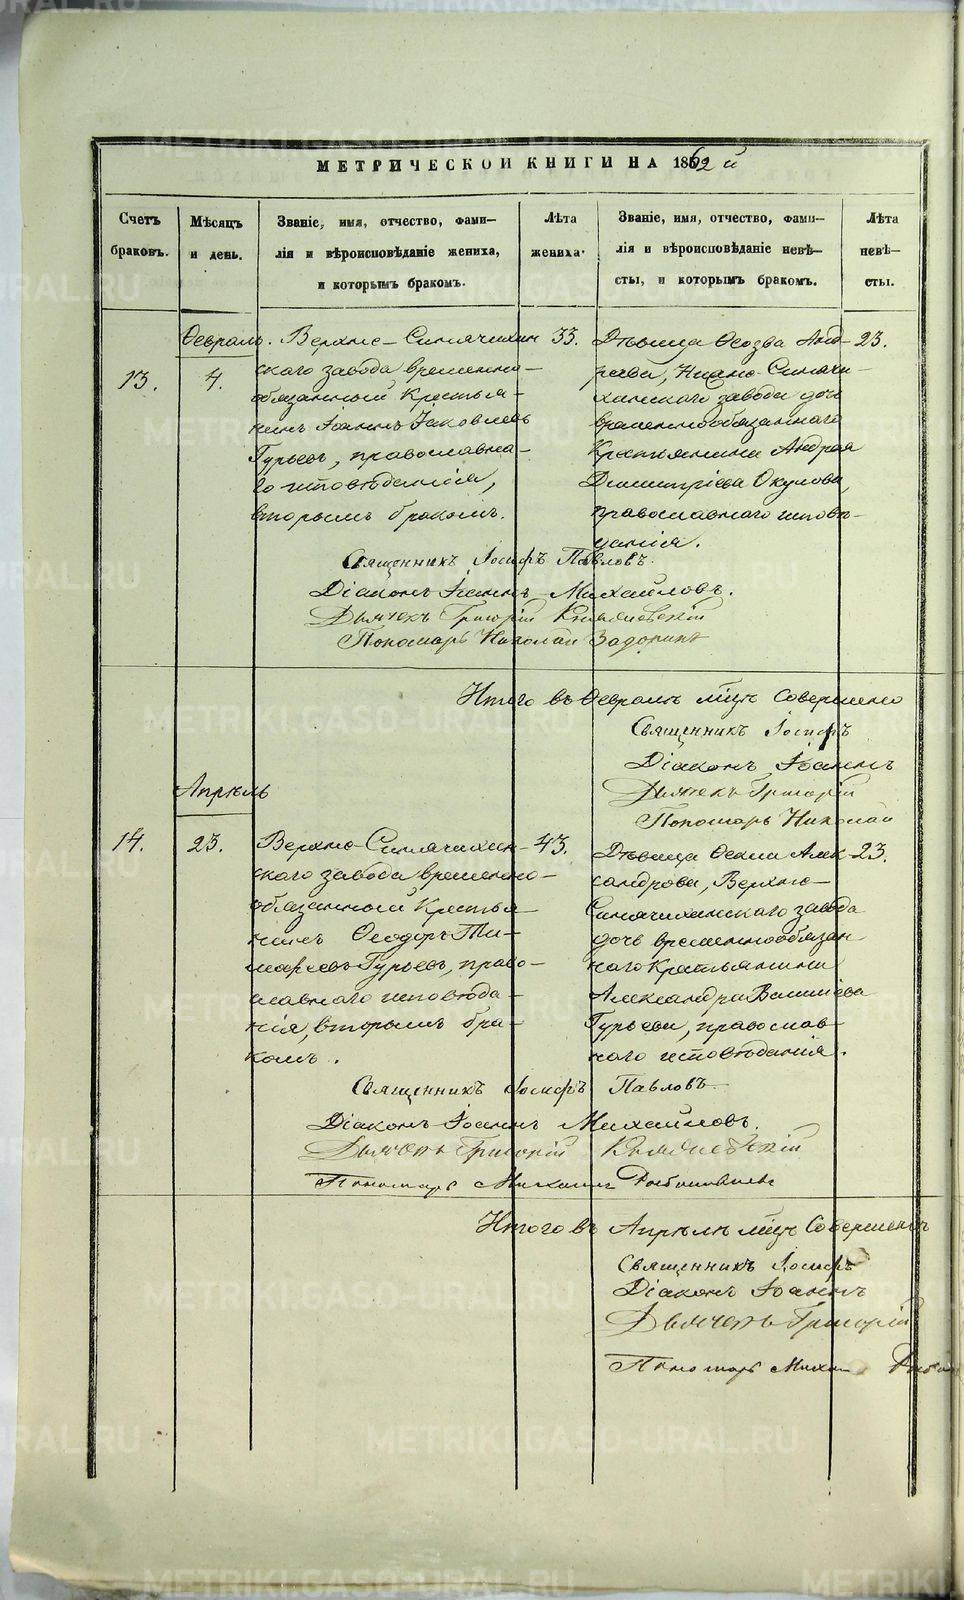 МЕТРИЧЕСКОЙ КНИГИ НА 1862 й
Счетъ браковъ.
Мѣсяцъ и день.
Званіе, имя, отчество, фами-
лія и вѣроисповѣданіе жениха,
и которымъ бракомъ.
Лѣта жениха.
Званіе, имя, отчество, фами-
лія и вѣроисповѣданіе невѣ-
сты, и которымъ бракомъ.
Лѣта невѣ-
сты.
Февраль.
13.
4.
Верхне-Синячихин
скаго завода временно-
обязанный Крестья-
нинъ Іоаннъ Іаковлевъ
Гурьевъ, православна-
го исповѣданія,
вторымъ бракомъ.
33.
Дѣвица Ѳеозва Анд-
реева, Нижне-Синячи-
хинскаго завода дочь
временнообязаннаго
Крестьянина Андрея
Димитріева Окулова,
православнаго исповѣ-
данія.
23.
Священникъ Іосифъ Павловъ.
Діаконъ Іоаннъ Михайловъ.
Дьячекъ Григорій
Пономарь Николай Задоринъ
Итого въ Февралѣ мѣцѣ совершено
Священникъ Іосифъ
Діаконъ Іоаннъ
Дьячекъ Григорій
Пономарь Николай
Апрѣль
14.
23.
Верхне-Синячихин-
скаго завода временно-
обязанный Крестья-
нинъ Ѳеодоръ Ти-
моѳеевъ Гурьевъ, право-
славнаго исповѣда-
нія, вторымъ бра-
комъ.
43.
Дѣвица Ѳекла Алек-
сандрова, Верхне-
Синячихинскаго завода
дочь временнообязан
наго Крестьянина
Александра Васильева
Гурьева, православ-
наго исповѣданія.
23.
Священникъ Іосифъ Павловъ
Діаконъ Іоаннъ Михайловъ.
Дьячекъ Григорій
Пономарь Михаилъ
Итого въ Апрѣлѣ мѣцѣ совершено
Священникъ Іосифъ
Діаконъ Іоаннъ
Дьячекъ Григорій
Пономарь Миха
METRIKI.GASO-URAL.RU